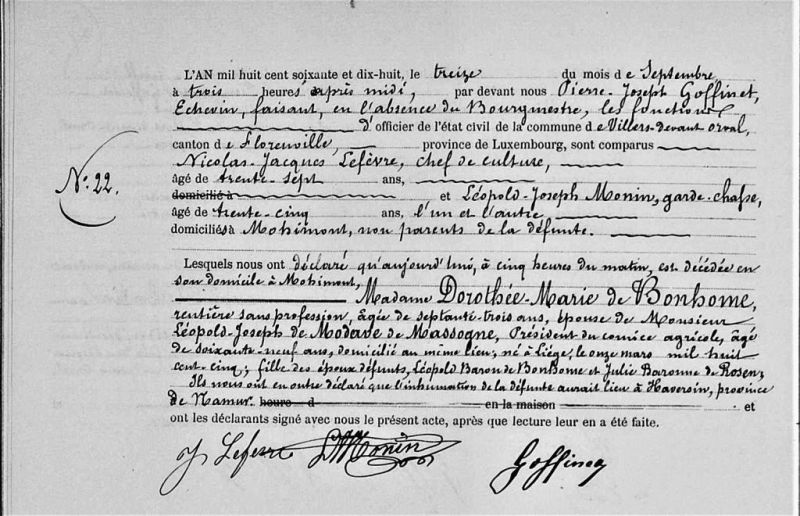 L'AN mil huit cent soixante et dix-huit, le treize du mois de Septembre
à trois heures après midi, par devant nous Pierre-Joseph Goffinet,
Echevin, faisant, en l'absence du Bourgmestre, les fonctions
d'officier de l'état civil de la commune de Villers-devant orval,
canton de Florenville, province de Luxembourg, sont comparus
Nicolas-Jacques Lefèvre, chef de culture,
No. 22.
âgé de trente-sept ans,
domicilié à et Léopold-Joseph Monin, garde-chasse,
âgé de trente-cinq ans, l'un et l'autre
domiciliés à Mohimont, non parents de la défunte.
Lesquels nous ont déclaré qu'aujourd'hui, à cinq heures du matin, est décédée en
son domicile à Mohimont,
Madame Dorothée-Marie de Bonhome,
rentière sans profession, âgée de septante-trois ans, épouse de Monsieur
Léopold-Joseph de Modave de Massogne, Président du comice agricole, âgé
de soixante-neuf ans, domicilié au même lieu, né à Liége, le onze mars mil huit
cent-cinq; fille des époux défunts, Léopold Baron de Bonhome et Julie Baronne de Rosen;
Ils nous ont en outre déclaré que l'inhumation de la défunte aurait lieu à Haversin, province
de Namur. heure d en la maison . et
ont les déclarants signé avec nous le présent acte, après que lecture leur en a été faite.
Lefevre Monin Goffinet